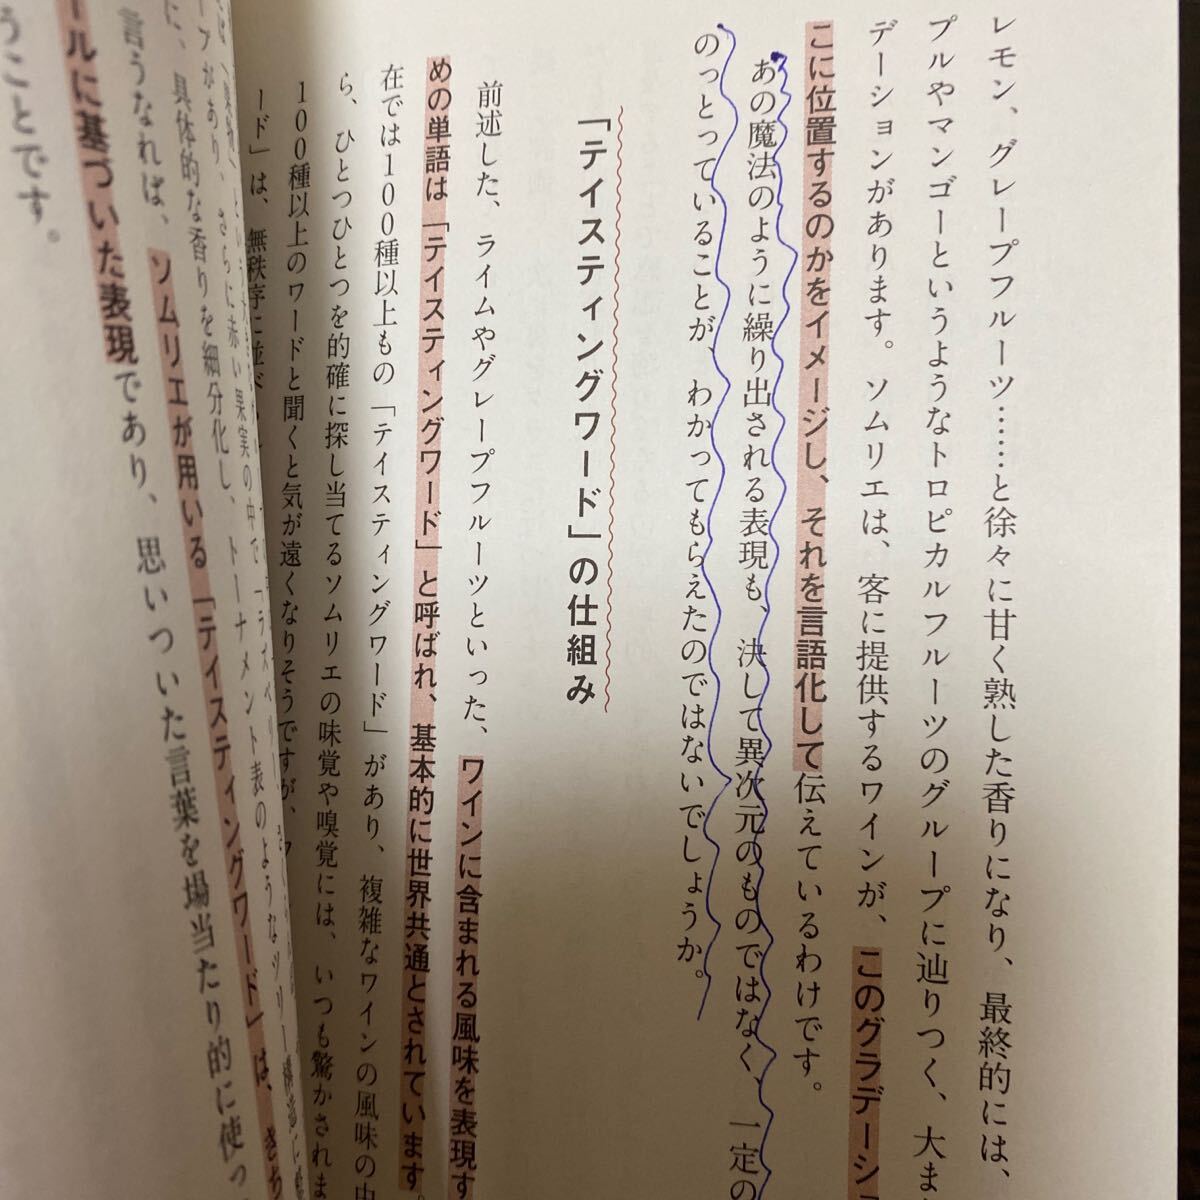 レモン、グレープフルーツ……と徐々に甘く熟した香りになり、最終的には、
プルやマンゴーというようなトロピカルフルーツのグループに辿りつく、大ま
デーションがあります。ソムリエは、客に提供するワインが、このグラデーショ
こに位置するのかをイメージし、それを言語化して伝えているわけです。
あの魔法のように繰り出される表現も、決して異次元のものではなく、一定の
のっとっていることが、わかってもらえたのではないでしょうか。
「テイスティングワード」の仕組み
前述した、ライムやグレープフルーツといった、ワインに含まれる風味を表現す
めの単語は「テイスティングワード」と呼ばれ、基本的に世界共通とされています。
在では100種以上もの「テイスティングワード」があり、複雑なワインの風味の中
ら、ひとつひとつを的確に探し当てるソムリエの味覚や嗅覚には、いつも驚かされま
100種以上のワードと聞くと気が遠くなりそうですが、
ード」は、無秩序に並べ
ープがあり、さらに赤い果実の中で「ラズベリー
に、具体的な香りを細分化し、トーナメント表のようなツリー構造
言うなれば、ソムリエが用いる「テイスティングワード」は、きち
ールに基づいた表現であり、思いついた言葉を場当たり的に使っ
うことです。